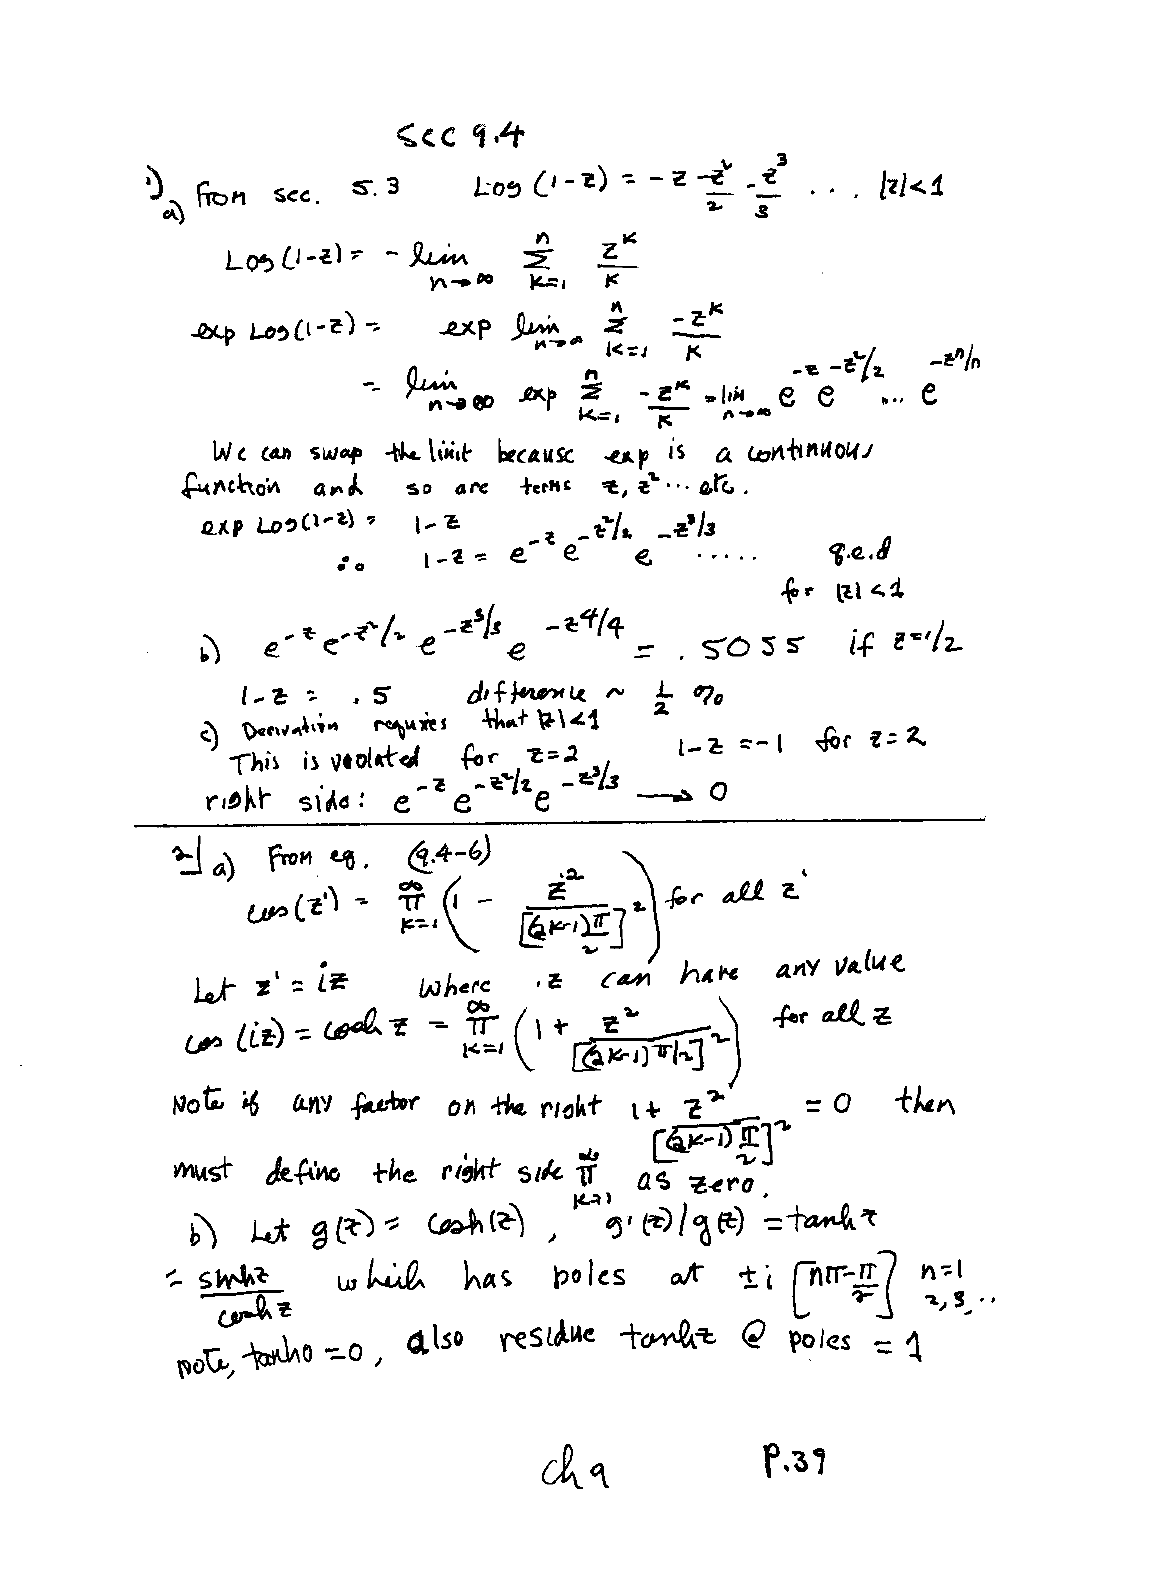 Sec 9.4
1) a) From sec. 5.3 Log (1-z) = -z -z²/2 -z³/3 ... |z|<1
Log (1-z) = - lim n→∞ Σ k=1 n z^k/k
exp Log(1-z) = exp lim n→∞ Σ k=1 n -z^k/k
= lim n→∞ exp Σ k=1 n -z^k/k = lim n→∞ e^-z e^-z²/2 ... e^-z^n/n
We can swap the limit because exp is a continuous
function and so are terms z, z² ... etc.
exp Log(1-z) = 1-z
∴ 1-z = e^-z e^-z²/2 e^-z³/3 ..... q.e.d
for |z|<1
b) e^-z e^-z²/2 e^-z³/3 e^-z4/4 = .5055 if z=1/2
1-z = .5 difference ~ 1/2 %
c) Derivation requires that |z|<1
This is violated for z=2 1-z =-1 for z=2
right side: e^-z e^-z²/2 e^-z³/3 → 0
2] a) From eq. (9.4-6)
cos(z') = Π k=1 ∞ (1 - z'²/[(2k-1)π/2]²) for all z'
Let z' = iz where z can have any value
cos (iz) = cosh z = Π k=1 ∞ (1+ z²/[(2k-1)π/2]²) for all z
Note if any factor on the right 1+ z²/[(2k-1)π/2]² = 0 then
must define the right side Π k=1 ∞ as zero.
b) Let g(z) = cosh(z), g'(z)/g(z) = tanh z
= sinh z/cosh z which has poles at ±i [nπ-π/2] n=1 2,3,..
note, tanh 0 =0, also residue tanh z @ poles = 1
ch 9 P.39